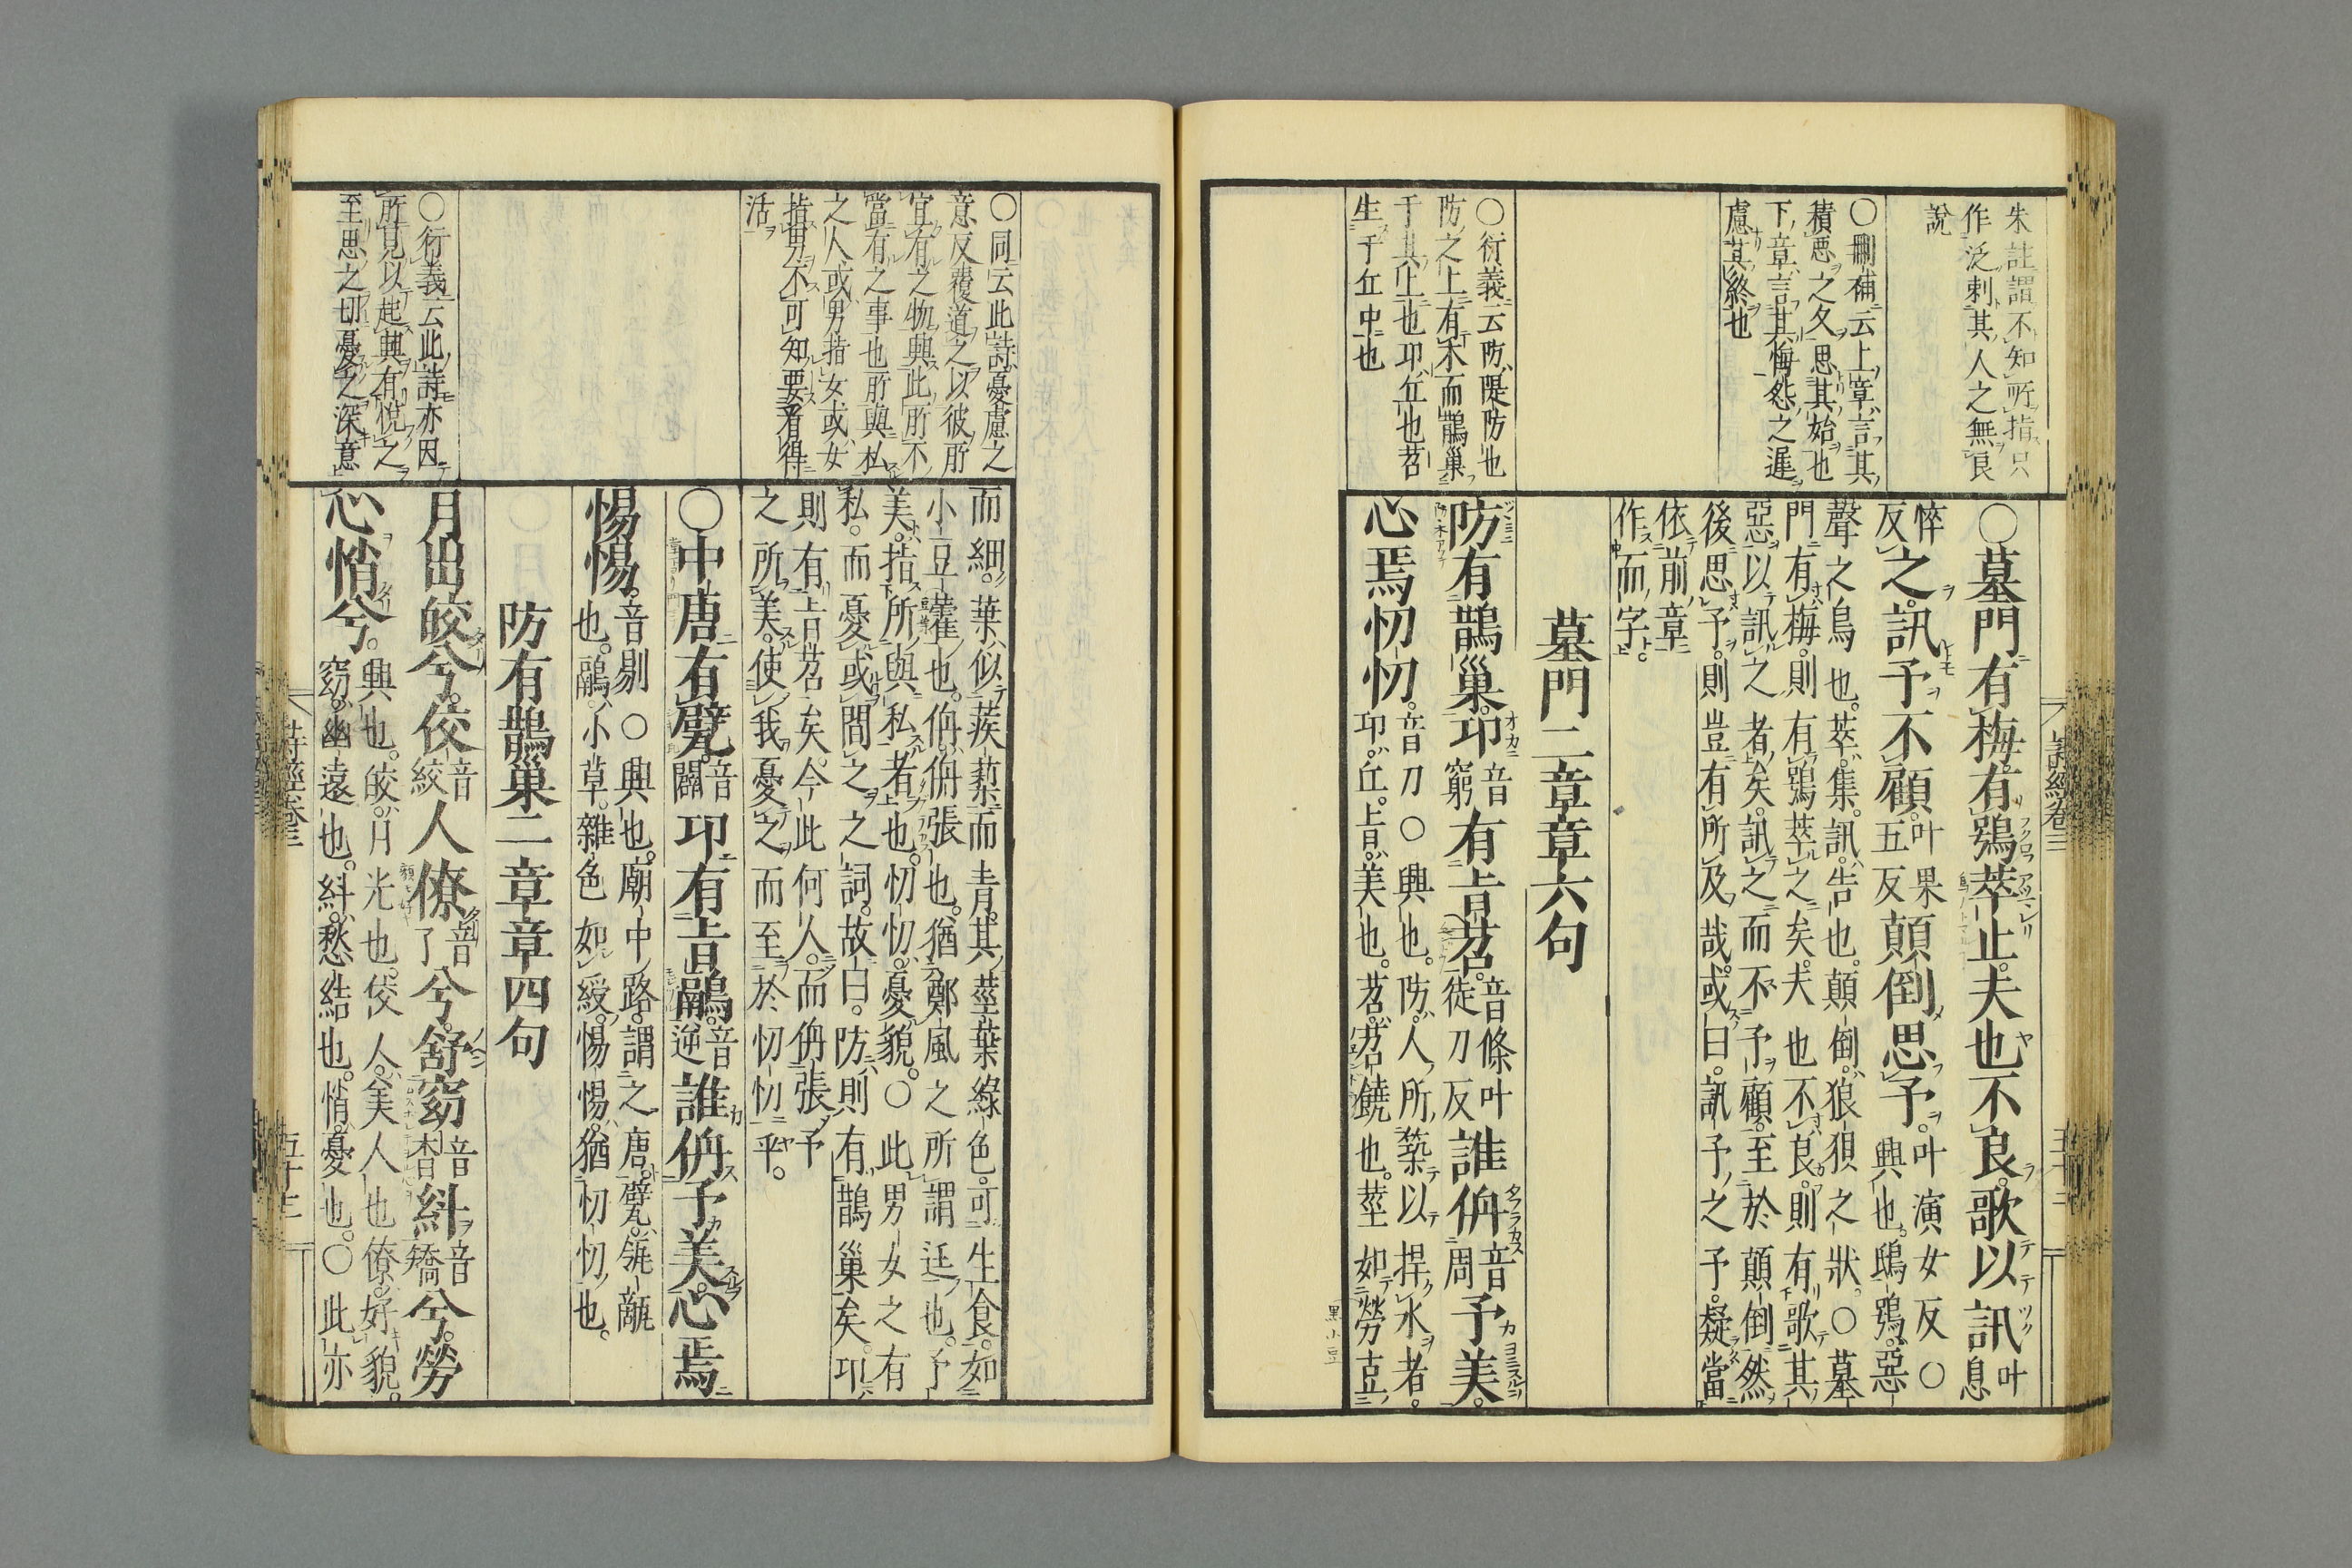 朱註謂不知所指只
作泛刺其人之無良
說
〇刪補云上章言其
積惡之久思其始也
下章言其悔怨之遲
慮其終也
〇衍義云防隄防也
防之上有木而鵲巢
于其上也卭丘也苕
生于丘中也
〇墓門有梅有鴞萃止夫也不良歌以訊叶息
悴反之訊予不顧叶果五反顛倒思予叶演女反〇
興也鴟鴞惡
聲之鳥也萃集訊告也顛倒狼狽之狀〇墓
門有梅則有鴞萃之矣夫也不良則有歌其
惡以訊之者矣訊之而不予顧至於顛倒然
後思予則豈有所及哉或曰訊予之予疑當
依前章
作而字
墓門二章章六句
防有鵲巢卭音窮有旨苕音條叶徒刀反誰侜音周予美
心焉忉忉音刀〇興也防人所築以捍水者
卭丘旨美也苕苕饒也莖如勞豆
黑小豆
詩經卷三
五十二
〇同云此詩憂慮之
意反覆道之以彼所
宜有之物興此所不
當有之事也所與私
之人或男指女或女
指男不可知要看得
活
〇衍義云此詩亦因
所見以起興有悅之
至思之切憂之深意
而細葉似蒺藜而青其莖葉綠色可生食如
小豆藿也侜侜張也猶鄭風之所謂迋也予
美指所與私者也忉忉憂貌〇此男女之有
私而憂或間之之詞故曰防則有鵲巢矣卭
則有旨苕矣今此何人而侜張予
之所美使我憂之而至於忉忉乎
〇中唐有甓音闢卭有旨鷊音逆誰侜予美心焉
惕惕音剔〇興也廟中路謂之唐甓瓴甋
也鷊小草雜色如綬惕惕猶忉忉也
防有鵲巢二章章四句
月出皎兮佼音絞人僚音了兮舒窈音杳糾音矯兮勞
心悄兮興也皎月光也佼人美人也僚好貌
窈幽遠也糾愁結也悄憂也〇此亦
詩經卷三
五十二